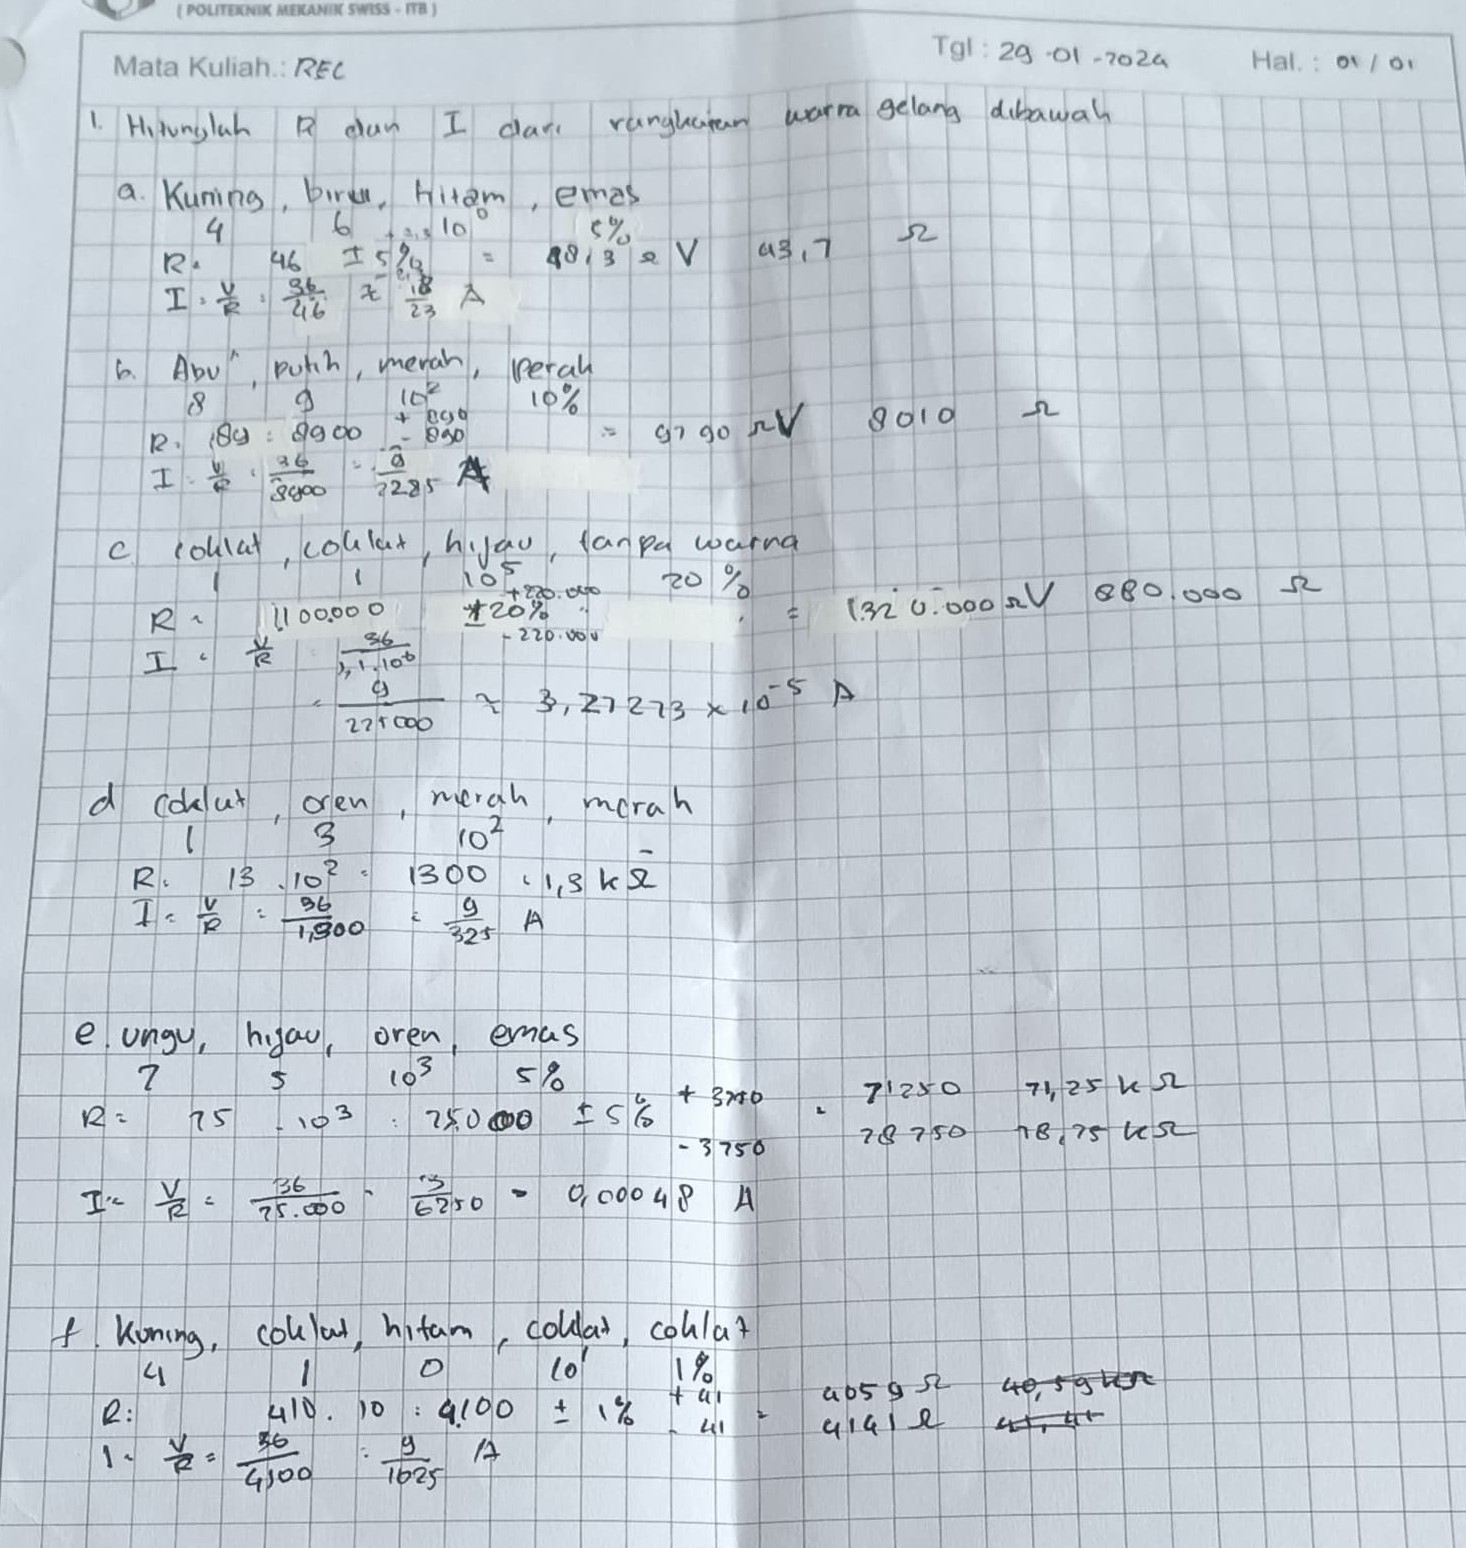 ( POLITEKNIK MEKANIK SWISS - ITB )
Mata Kuliah.: REC Tgl : 29-01-2024 Hal. : 01 / 01
1. Hitunglah R dan I dari rangkaian warna gelang dibawah
a. Kuning, biru, hitam, emas
4 6 10⁰ 5%
R = 46 ± 5% = 48,3 Ω V 43,7 Ω
I = V/R = 36/46 = 18/23 A
b. Abu", putih, merah, perak
8 9 10² 10%
R = 89 = 8900 + 890 - 890 = 9790 Ω V 8010 Ω
I = V/R = 36/8900 = 9/2225 A
c. coklat, coklat, hijau, tanpa warna
1 1 10⁵ 20%
R = 1.100.000 ± 20% +220.000 -220.000 = 1.320.000 Ω V 880.000 Ω
I = V/R = 36/1,1.10⁶
= 9/275000 ≈ 3,27273 × 10⁻⁵ A
d coklat, oren, merah, merah
1 3 10²
R = 13 . 10² = 1300 = 1,3 k Ω
I = V/R = 36/1,300 = 9/325 A
e. ungu, hijau, oren, emas
7 5 10³ 5%
R = 75 . 10³ = 75.000 ± 5% + 3750 = 71250 71,25 k Ω
- 3750 78750 78,75 k Ω
I = V/R = 36/75.000 = 3/6250 = 0,00048 A
f. Kuning, coklat, hitam, coklat, coklat
4 1 0 10¹ 1%
R = 410 . 10 = 4.100 ± 1% + 41 = 4059 Ω 40,59 kΩ
- 41 4141 Ω 41,41
I = V/R = 36/4100 = 9/1025 A